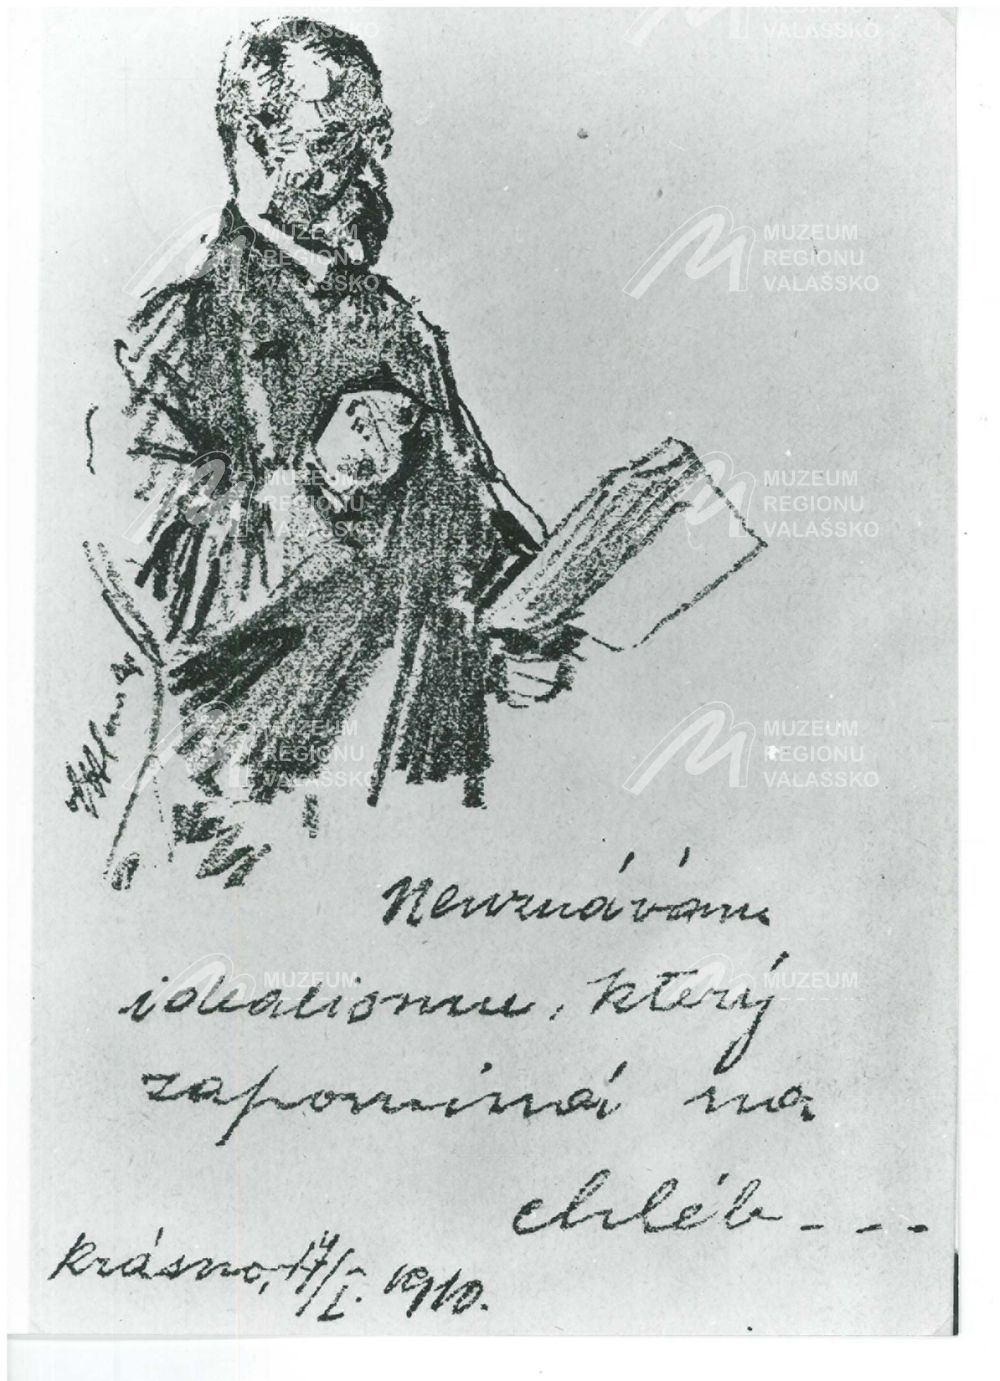 Neuznávám
idealismu, který
zapomíná na
chléb - - -
Krásno, 17/I. 1910.
MUZEUM
REGIONU
VALAŠSKO
MUZEUM
REGIONU
VALAŠSKO
MUZEUM
REGIONU
VALAŠSKO
MUZEUM
REGIONU
VALAŠSKO
MUZEUM
REGIONU
VALAŠSKO
MUZEUM
REGIONU
VALAŠSKO
MUZEUM
MUZEUM
REGIONU
VALAŠSKO